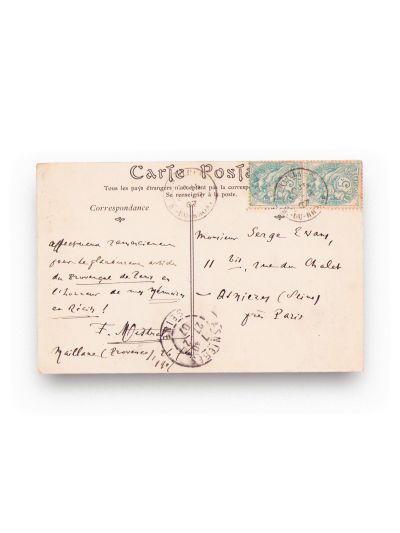 Carte Postale
Tous les pays étrangers n'acceptent pas la correspon
Se renseigner à la poste.
Correspondance
affectueux remerciement
pour le glorieux article
du Provençal de Paris en
l'honneur de mes Mémoires
en Récits !
F. Mistral
Maillane (Provence),
Monsieur Serge Evans,
11 bis, rue du Chalet
Asnières (Seine)
près Paris
ASNIERES
SEINE